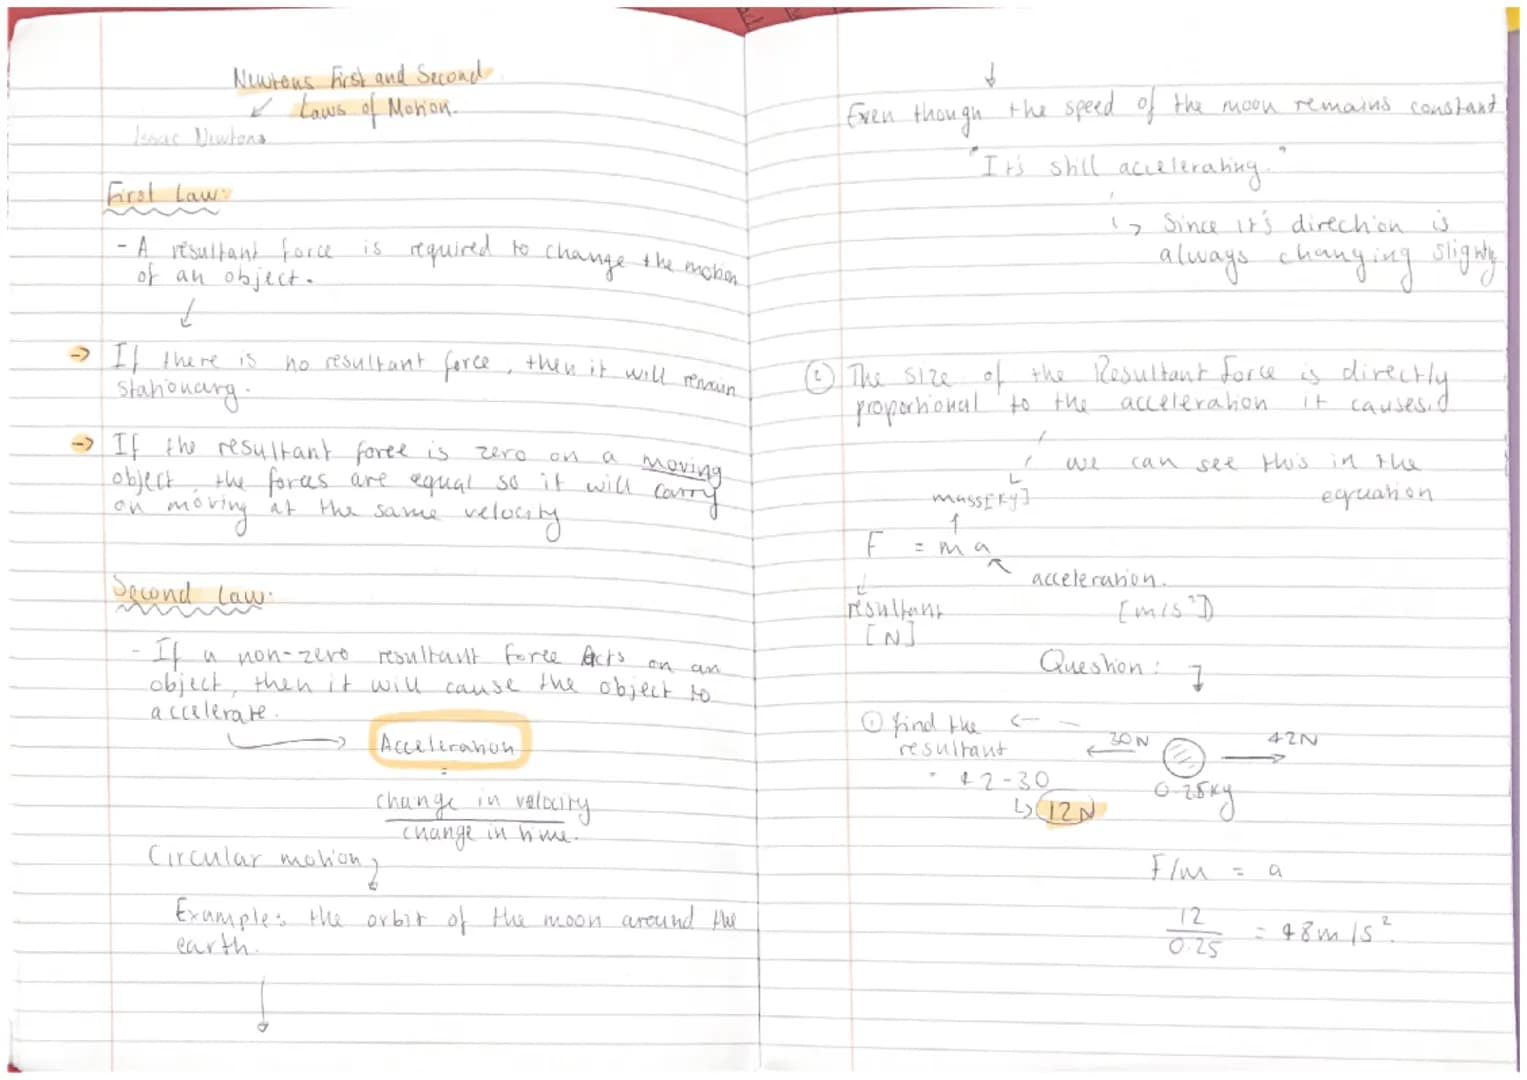 Newtons First and Second
Laws of Motion.
Issac Newtons
First Law:
- A resultant force is required to change the motion
of an object.
→ If there is no resultant force, then it will remain
stationary.
→ If the resultant force is zero on a moving
object, the forces are equal so it will carry
on moving at the same velocity
Second Law:
- If a non-zero resultant force Acts on an
object, then it will cause the object to
accelerate.
Acceleration
=
change in velocity
change in time.
Circular motion
Examples the orbit of the moon around the
earth.
Even though the speed of the moon remains constant
"It's still accelerating."
↳ Since it's direction is
always changing slightly
② The size of the Resultant force is directly
proportional to the acceleration it causes.
we can see this in the
equation
mass[kg]
F = ma
acceleration.
[m/s²]
resultant
[N]
Question:
① find the
resultant
42-30
↳ 12N
30N
42N
0.25kg
F/m = a
12
0.25
= 48m/s².